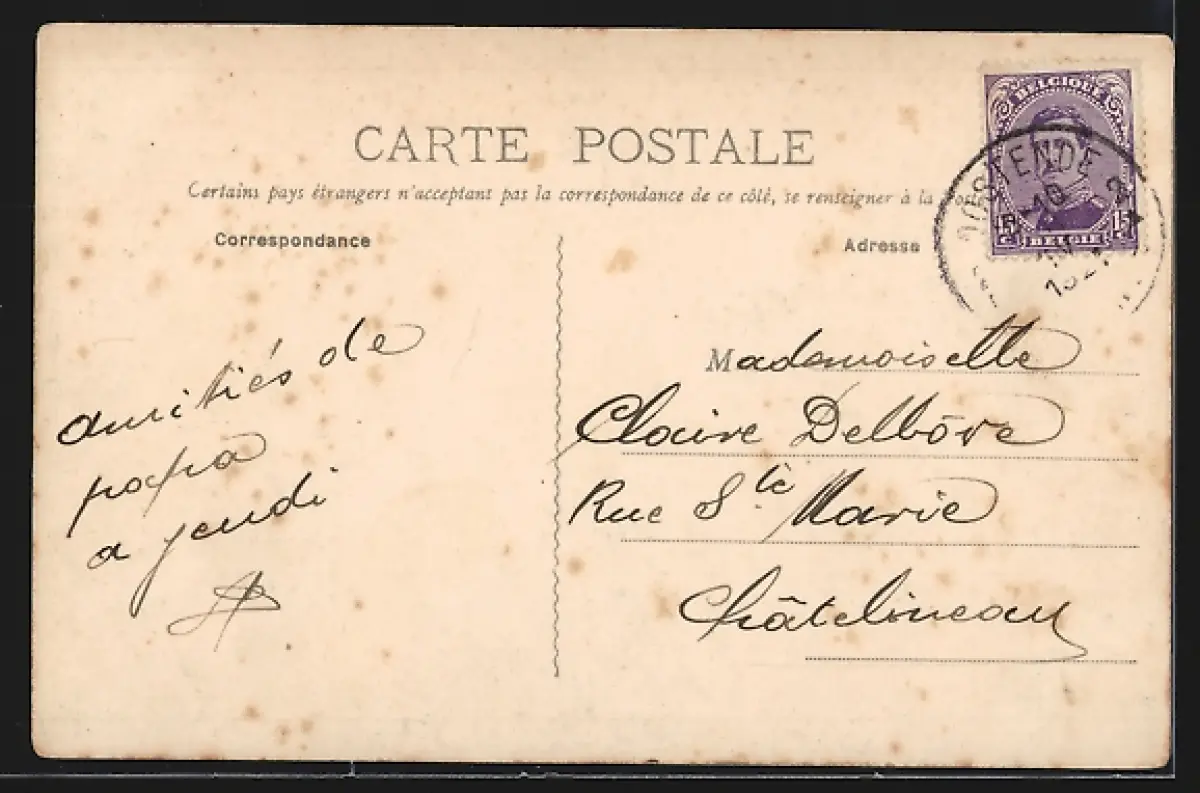 CARTE POSTALE
Certains pays étrangers n'acceptant pas la correspondance de ce côté, se renseigner à la Poste
Correspondance
Adresse
BELGIQUE
15 c 15 c
BELGIË
OOSTENDE
amitiés de
papa
a jeudi
Mademoiselle
Claire Delbôve
Rue Ste Marie
Châtelineau